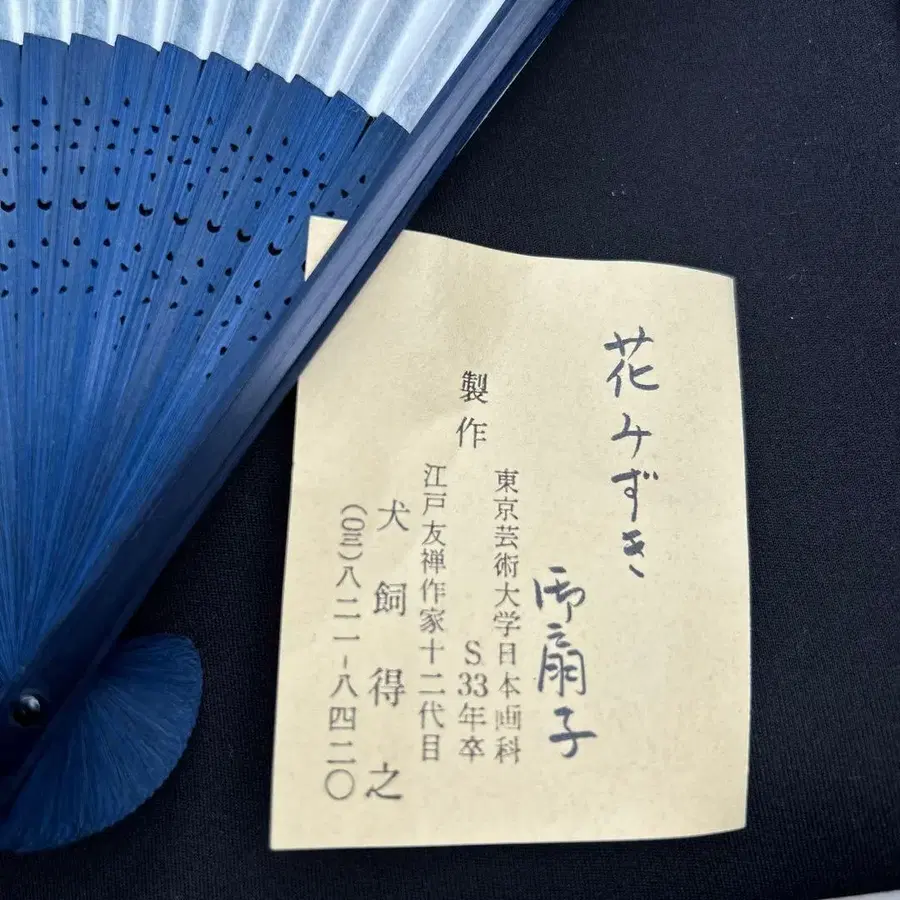 花みずき
御扇子
東京芸術大学日本画科
S33年卒
製作
江戸友禅作家十二代目
犬飼得之
(〇三)八二一-八四二〇